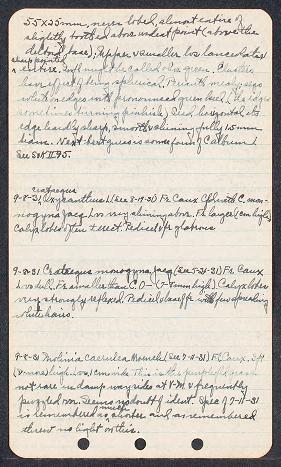 55 x 25 mm, never lobed, almost entire or
slightly toothed above widest point (above the
deltoid base); upper & smaller lvs lanceolate &
sharp pointed
entire. Lvs might be called blue green. Clusters
have effect of being spherical. Perianth mealy sego
white on edges with pronounced green keel, (the edges
sometimes turning pinkish). Seed horizontal, its
edge hardly sharp, smooth & shining, fully 1.5 mm
diam. Next best guess is some form of C album L
See SVK II 95.
Crataegus
9-8-31 Oxyacantha L (See 8-19-31) Fr. Caux C with C. mon-
ogyna Jacq. Lvs very shining above. Fr larger (1 cm high)
Calyx lobes often ± erect. Pedicels glabrous
9-8-31 Crataegus monogyna Jacq (See 5-24-31) Fr. Caux
Lvs dull. Fr smaller than C.O— (7-8 mm high) Calyx lobes
very strongly reflexed. Pedicels with few spreading
white hairs.
9-8-31 Molinia caerulea Moench (See 7-11-31) Fl Caux. 3 ft
high. Lvs. 1 cm wide. This is the purple grass
not rare in damp way sides at V-M & frequently
puzzled me. Seems no doubt of ident. Spec of 7-11-31
much
is remembered as shorter and as remembered
threw no light on this.